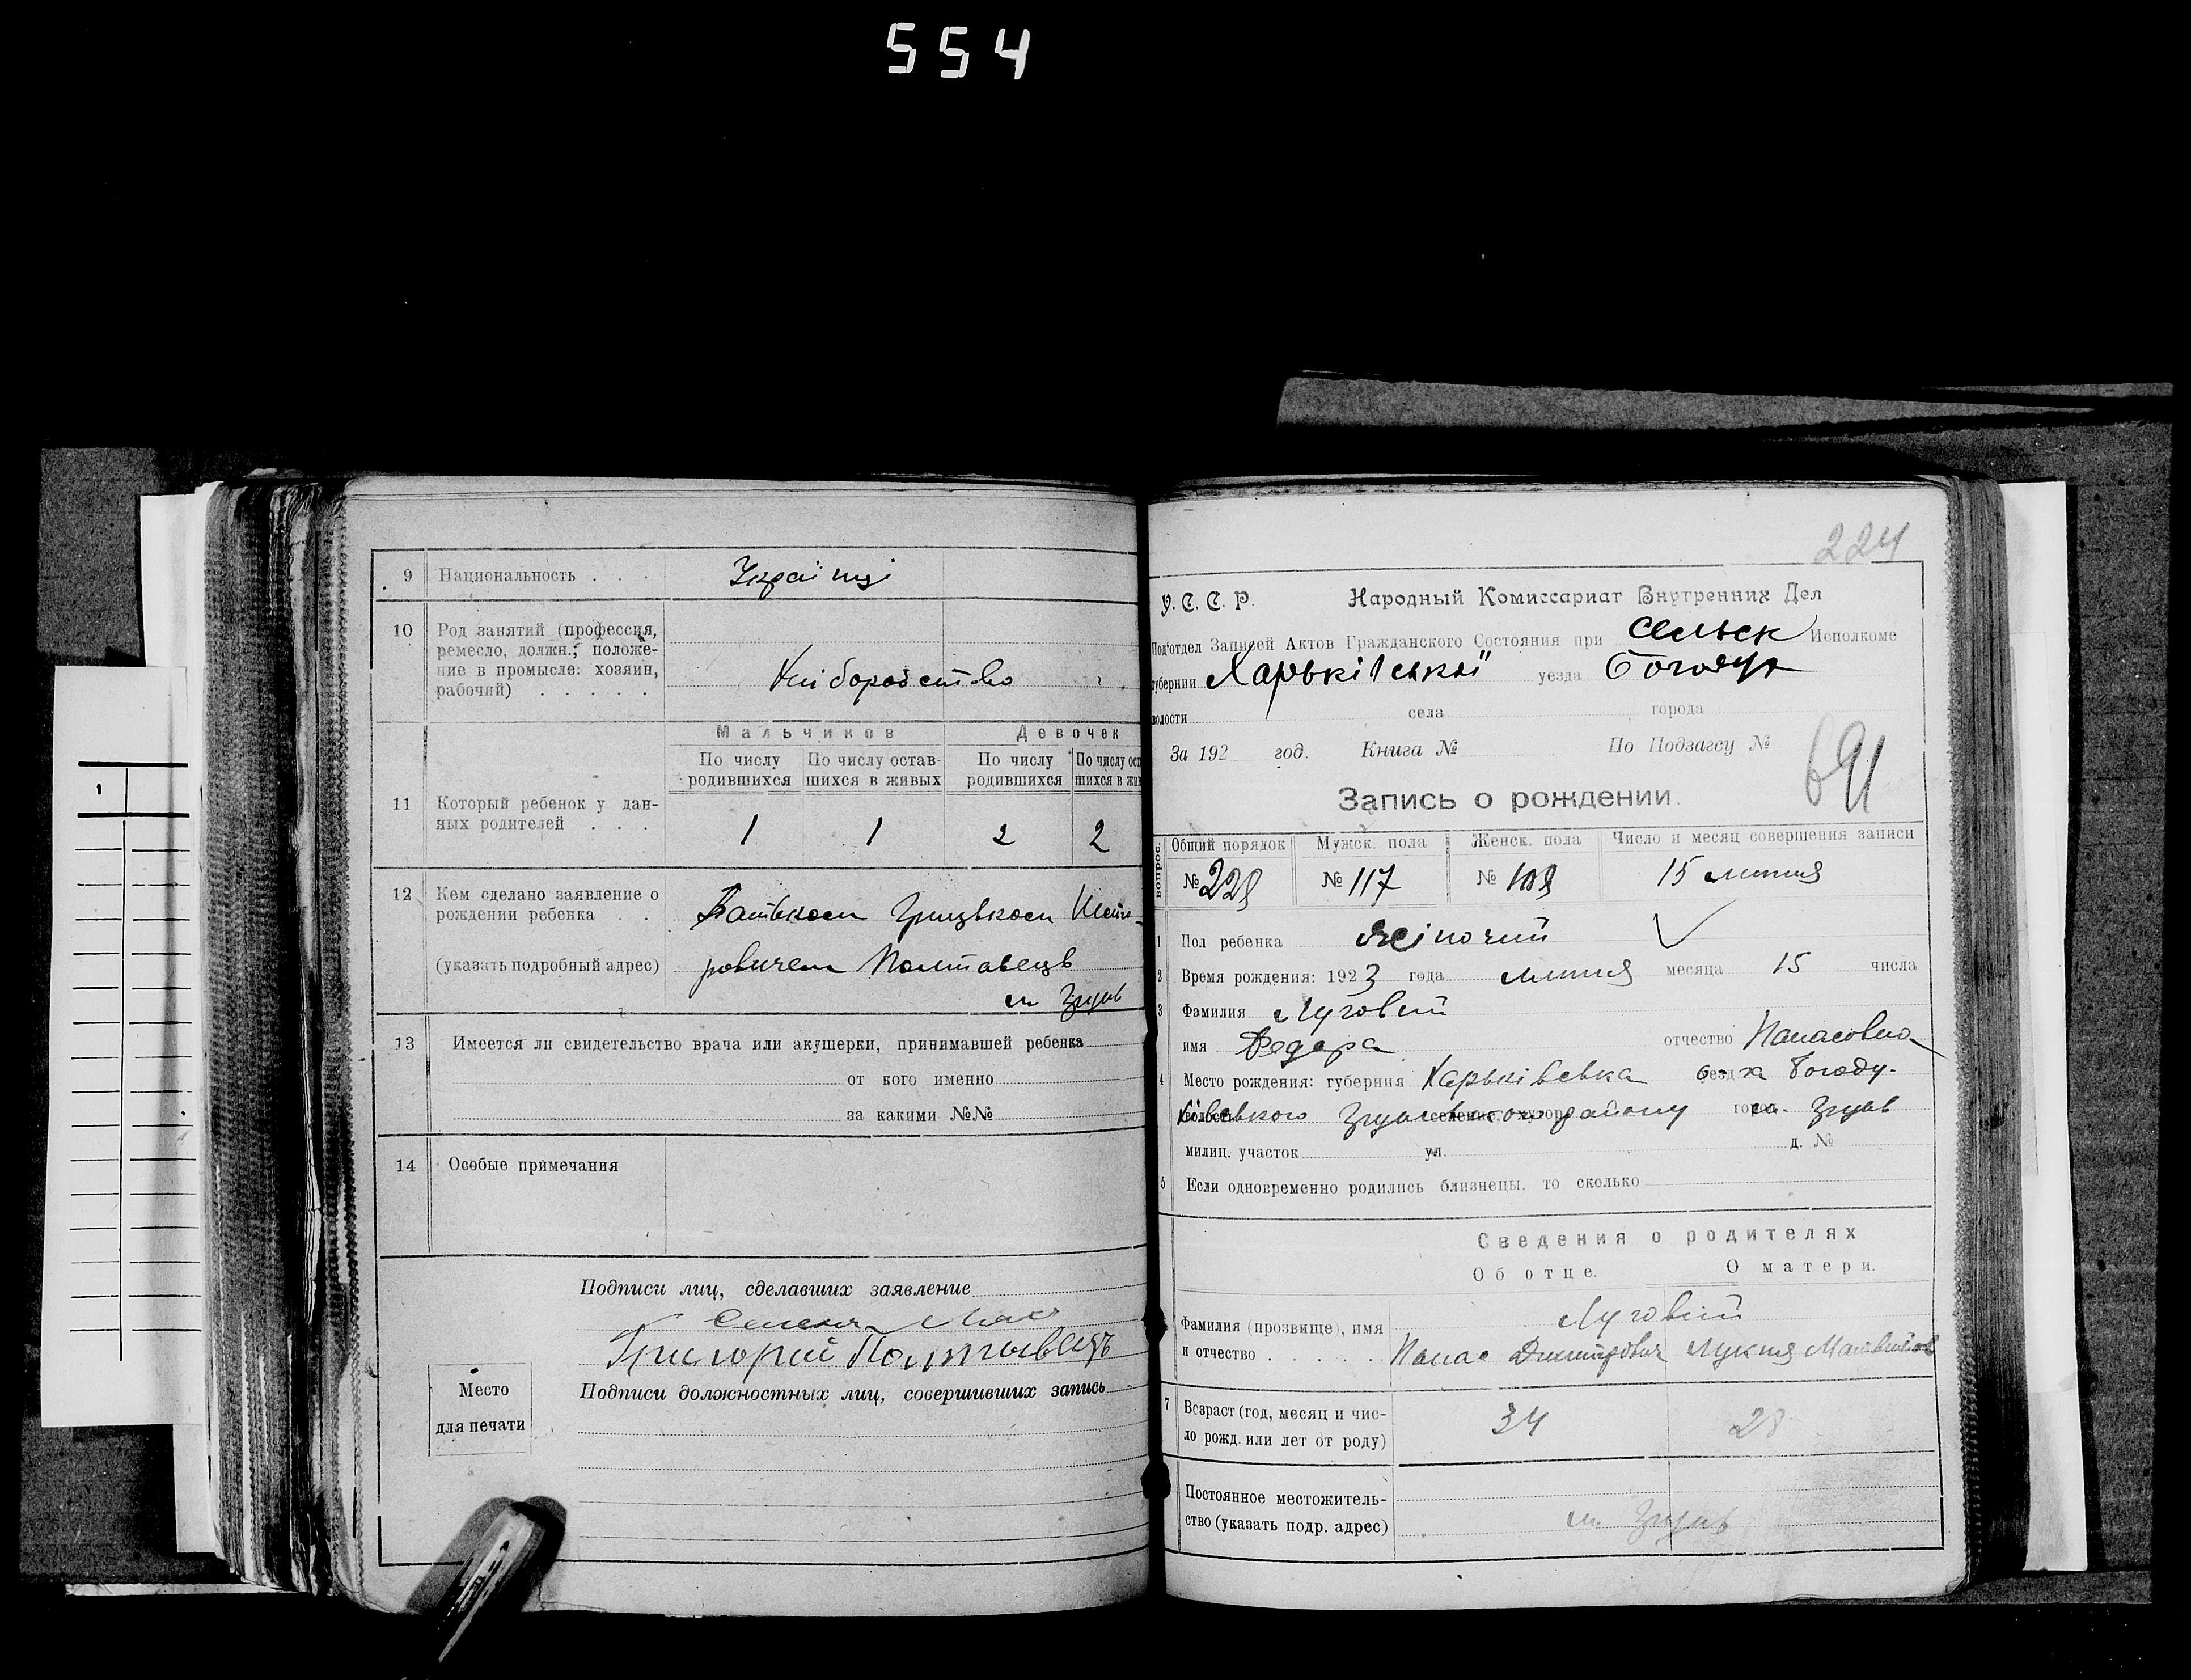 554
9 Национальность . . . Україці
10 Род занятий (профессия,
ремесло, должн.; положе-
ние в промысле: хозяин,
рабочий) . . . . . Хліборобство
Мальчиков Девочек
По числу родившихся По числу остав-шихся в живых По числу родившихся По числу ост шихся в жив
11 Который ребенок у дан-
ных родителей . . . 1 1 2 2
12 Кем сделано заявление о
рождении ребенка . . Батьком Грицьком
(указать подробный адрес) ровичем Полтавець
м
13 Имеется ли свидетельство врача или акушерки, принимавшей ребенка
от кого именно
за какими №№
14 Особые примечания
Подписи лиц, сделавших заявление
Григорий Полтавецъ
Место
для печати
Подписи должностных лиц, совершивших запись
224
У. С. С. Р. Народный Комиссариат Внутренних Дел
Под'отдел Записей Актов Гражданского Состояния при Сельск Исполкоме
губернии Харьківської уезда Богодух
волости села города
За 192 год. Книга № По Подзагсу № 691
Запись о рождении.
вопрос. Общий порядок Мужск. пола Женск. пола Число и месяц совершения записи
№ 228 № 117 № 109 15 липня
1 Пол ребенка жіночий
2 Время рождения: 1923 года липня месяца 15 числа
3 Фамилия Луговий
имя Федора отчество Панасовна
4 Место рождения: губерния Харьківська уезд Богоду-
хівського району город м.
милиц. участок ул. д. №
5 Если одновременно родились близнецы, то сколько
Сведения о родителях
Об отце. О матери.
Фамилия (прозвище), имя Луговий
и отчество . . . . . Панас Дмитрович Лукия
7 Возраст (год, месяц и чис-
ло рожд. или лет от роду) 34 28
Постоянное местожитель-
ство (указать подр. адрес) м.